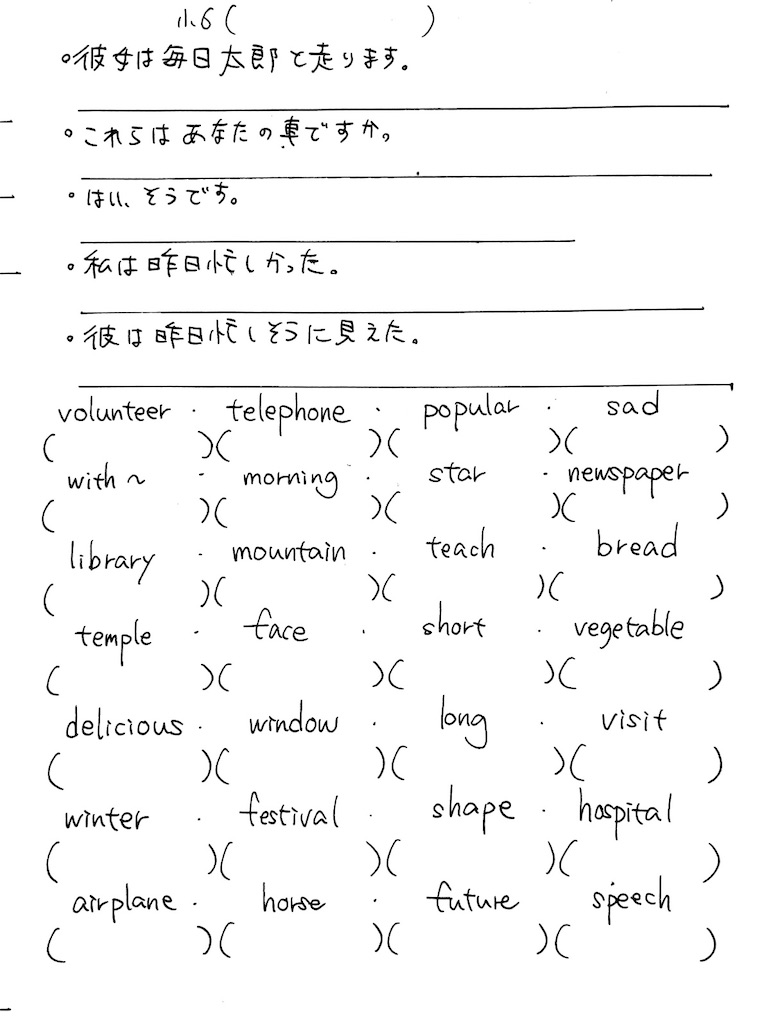 小6 (                    )
○彼女は毎日太郎と走ります。
○これらはあなたの車ですか。
○はい、そうです。
○私は昨日忙しかった。
○彼は昨日忙しそうに見えた。
volunteer · telephone · popular · sad
(          )(          )(          )(          )
with ~ · morning · star · newspaper
(          )(          )(          )(          )
library · mountain · teach · bread
(          )(          )(          )(          )
temple · face · short · vegetable
(          )(          )(          )(          )
delicious · window · long · visit
(          )(          )(          )(          )
winter · festival · shape · hospital
(          )(          )(          )(          )
airplane · horse · future · speech
(          )(          )(          )(          )